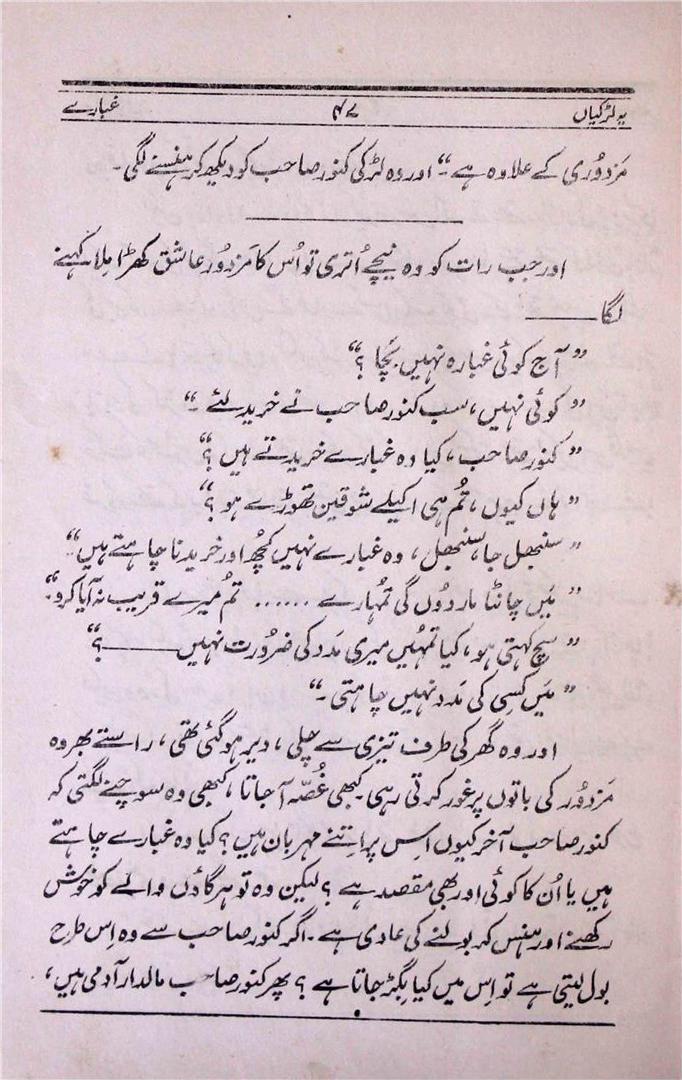 یہ لڑکیاں ۴۷ غبارے
مزدُوری کے علاوہ ہے۔“ اور وہ لڑکی کنور صاحب کو دیکھ کر ہنسنے لگی۔
اور جب رات کو وہ نیچے اُتری تو اُس کا مَزدُور عاشق کھڑا ملا۔ کہنے
لگا ــــــــ
”آج کوئی غبارہ نہیں بچا؟“
”کوئی نہیں، سب کنور صاحب نے خرید لئے۔“
”کنور صاحب، کیا وہ غبارے خریدتے ہیں؟“
”ہاں کیوں، تُم ہی اکیلے شوقین تھوڑے ہو؟“
”سنبھل جا، سنبھل، وہ غبارے نہیں کچُھ اور خریدنا چاہتے ہیں“
”مَیں چانٹا مار دوُں گی تمُہارے ...... تمُ میرے قریب نہ آیا کرو۔“
”سچ کہتی ہو، کیا تمہُیں میری مَدد کی ضرُورت نہیں ــــــــ ؟“
”مَیں کسِی کی مَدد نہیں چاہتی۔“
اور وہ گھر کی طرف تیزی سے چلی، دیر ہو گئی تھی، راستے بھر وہ
مزدوُر کی باتوں پر غور کرتی رہی۔ کبھی غُصّہ آ جاتا، کبھی وہ سوچنے لگتی کہ
کنور صاحب آخر کیوں اسِ پر اتِنے مہربان ہیں؟ کیا وہ غبارے چاہتے
ہیں یا اُن کا کوئی اور بھی مقصد ہے؟ لیکن وہ تو ہر گاؤں والے کو خوش
رکھنے اور ہنس کر بولنے کی عادی ہے۔ اگر کنور صاحب سے وہ اِس طرح
بول لیتی ہے تو اِس میں کیا بگِڑ جاتا ہے؟ پھر کنور صاحب مالدار آدمی ہیں،